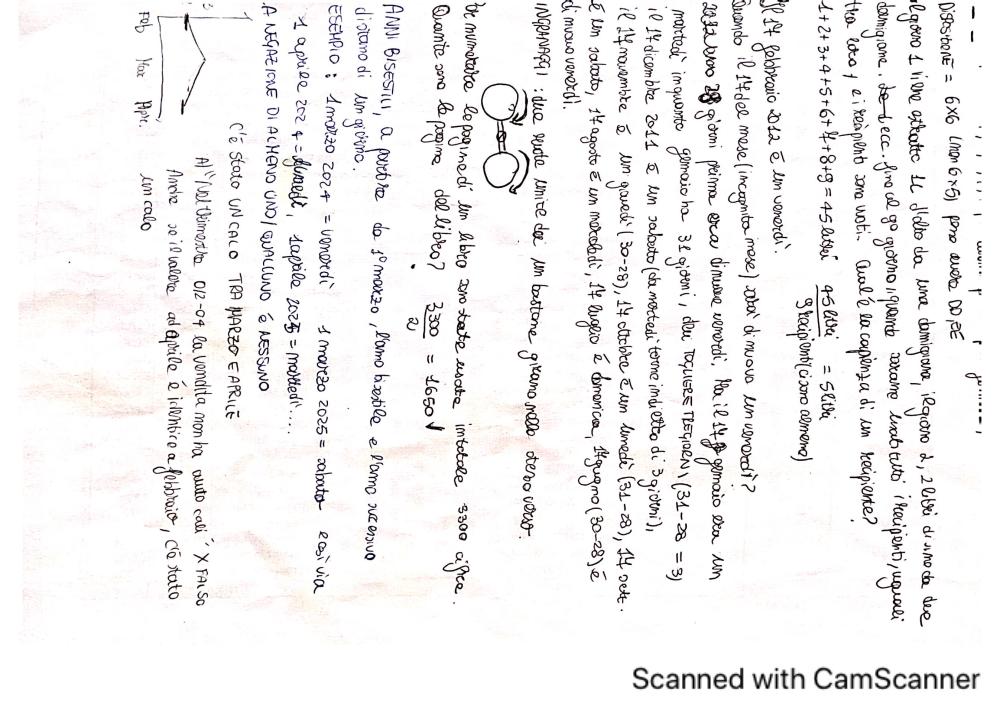 DISPOSIZIONE = 6x6 (non 6x5) perché avere DADI DE
Il giorno 1 viene estratto 1L d'olio da una damigiana, il giorno 2, 2 litri di vino da due
damigiane. ecc. fino al 9° giorno, quando saranno usati tutti i recipienti, uguali
tra loro, e i recipienti sono vuoti. Qual è la capienza di un recipiente?
1+2+3+4+5+6+7+8+9 = 45 litri 45 litri = 5 litri
9 recipienti (ci sono almeno)
Il 17 febbraio 2012 è un venerdì.
Quando il 17 del mese (incognita mese) sarà di nuovo un venerdì?
28 giorni prima era di nuovo venerdì. Ma il 17 gennaio era un
martedì in quanto gennaio ha 31 giorni, dei TOGLIERE TRE GIORNI (31-28 = 3)
il 17 dicembre 2011 è un sabato (da martedì torno indietro di 3 giorni),
il 17 novembre è un giovedì (30-28), 17 ottobre è un lunedì (31-28), 17 sett.
è un sabato, 17 agosto è un mercoledì, 17 luglio è domenica, 17 giugno (30-28) è
di nuovo venerdì.
INGRANAGGI: due ruote unite da un bastone girano nello stesso verso.
Per numerare le pagine di un libro sono state usate in totale 3300 cifre.
Quante sono le pagine del libro? 3300 = 1650 ✓
2
ANNI BISESTILI, a partire da 1° marzo, l'anno bisestile e l'anno successivo
distano di un giorno.
ESEMPIO: 1 marzo 2024 = venerdì 1 marzo 2025 = sabato e così via
1 aprile 2024 = lunedì, 1 aprile 2025 = martedì....
LA NEGAZIONE DI ALMENO UNO/QUALCUNO È NESSUNO
C'È STATO UN CALO TRA MARZO E APRILE
A) "Nel trimestre 02-04 la vendita non ha avuto cali" X FALSO
Anche se il valore ad aprile è identico a febbraio, c'è stato
un calo
Feb Mar Apr.
Scanned with CamScanner